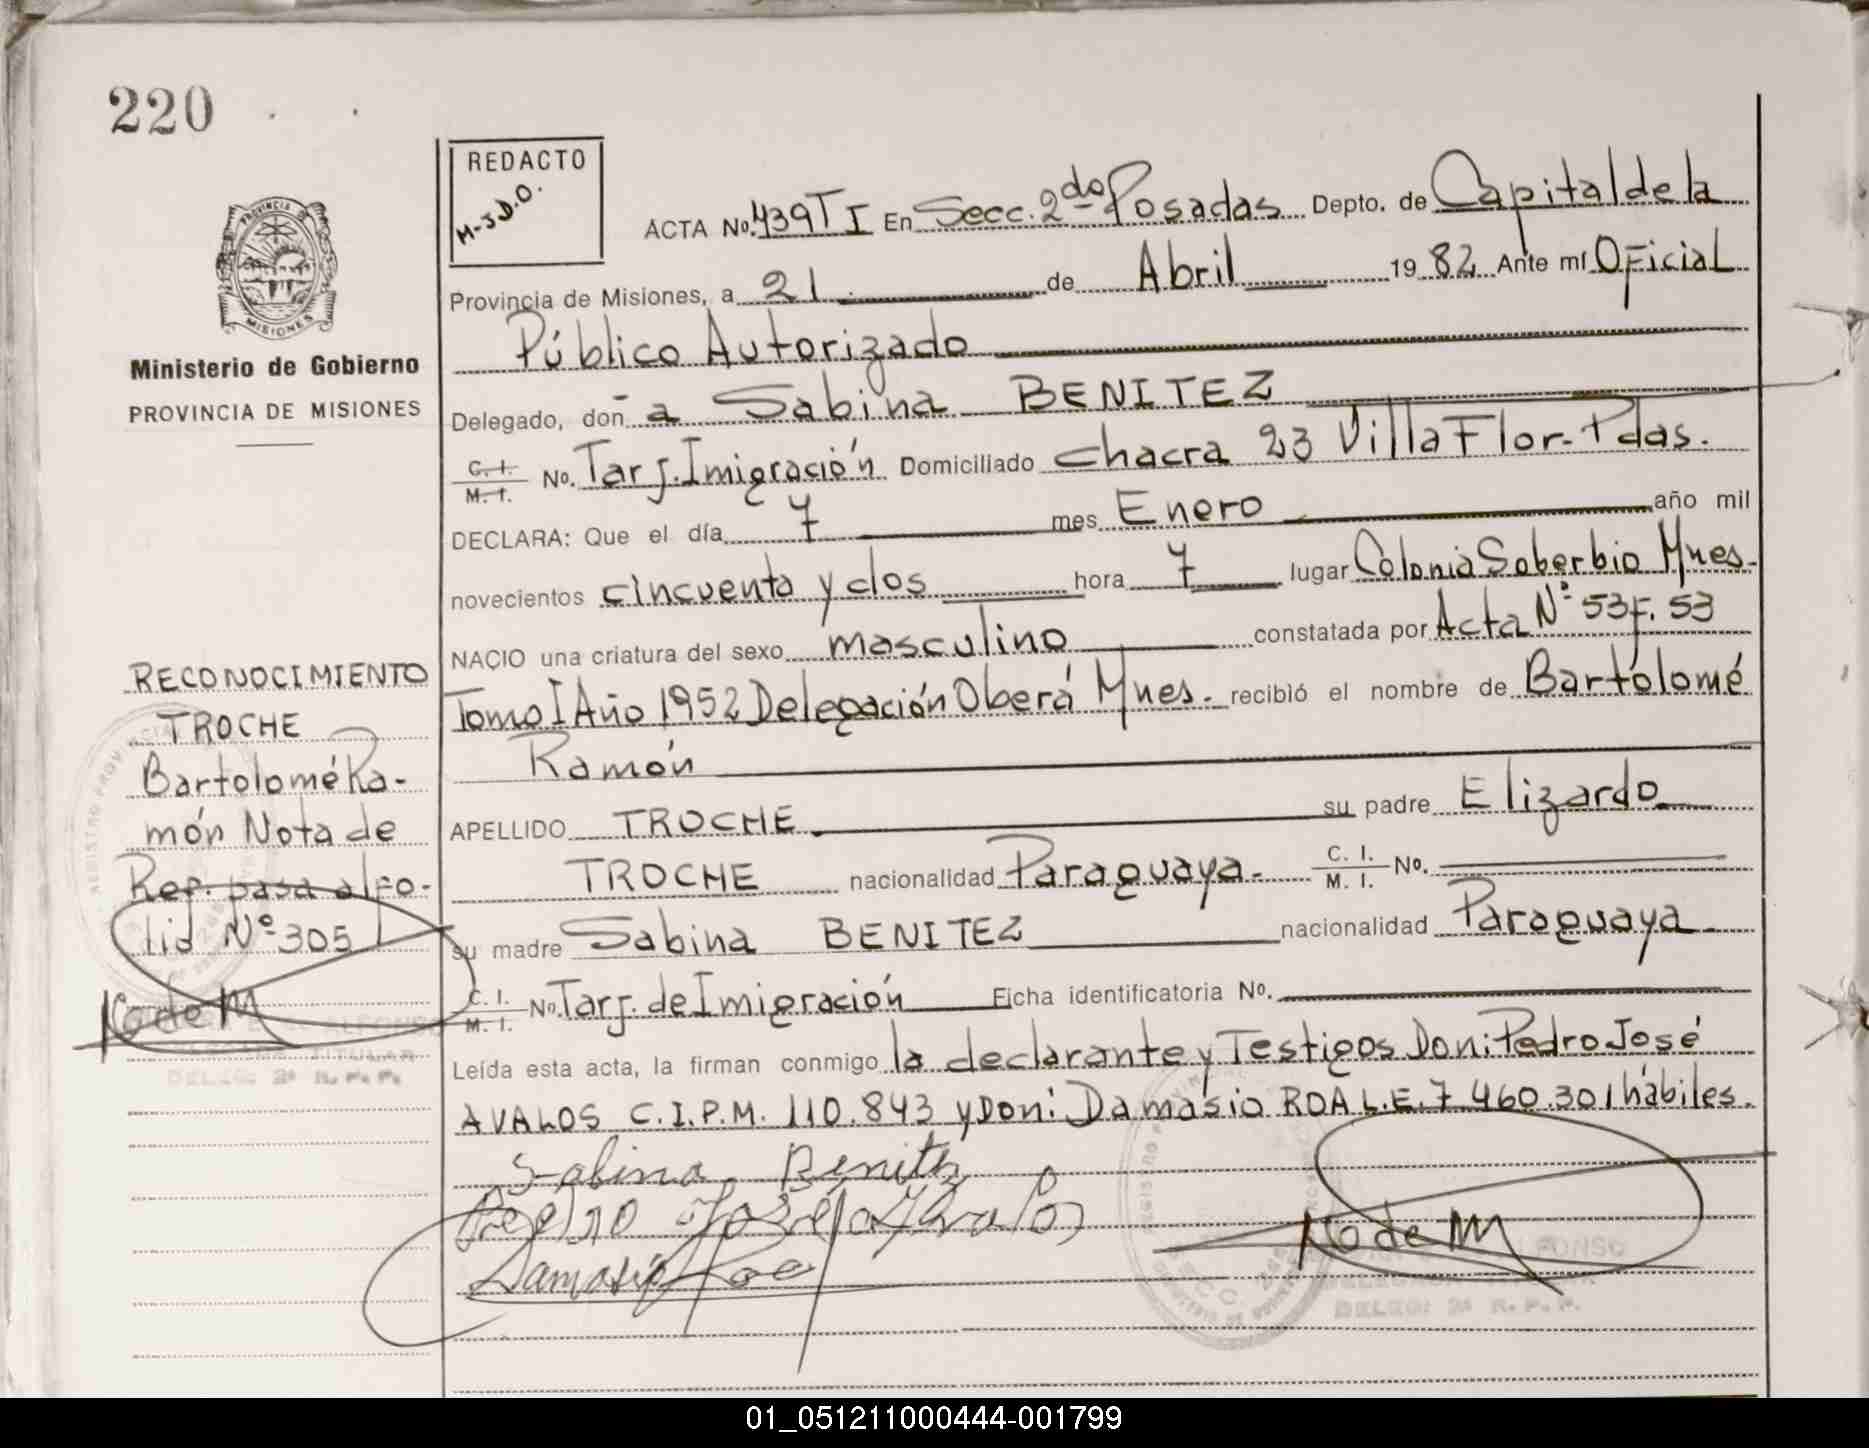 220
REDACTO
M-J.D.O.
ACTA No. 439 T I En Secc. 2do Posadas Depto. de Capital de la
Provincia de Misiones, a 21 de Abril 1982 Ante mí Oficial
Público Autorizado
Delegado, don a Sabina BENITEZ
C. I. M. I. No. Tarj. Imigración Domiciliado chacra 23 Villa Flor.- Pdas.
DECLARA: Que el día 7 mes Enero año mil
novecientos cincuenta y dos hora 7 lugar Colonia Soberbio Mnes-
NACIO una criatura del sexo masculino constatada por Acta Nº 53 F. 53
Tomo I Año 1952 Delegación Oberá Mnes.- recibió el nombre de Bartolomé
Ramón
APELLIDO TROCHE su padre Elizardo
TROCHE nacionalidad Paraguaya.- C. I. M. I. No.
su madre Sabina BENITEZ nacionalidad Paraguaya.-
C. I. M. I. No. Tarj. de Imigración Ficha identificatoria No.
Leída esta acta, la firman conmigo la declarante y Testigos Don: Pedro José
AVALOS C.I.P.M. 110.843 y Don: Damasio ROA L.E. 7 460.301 hábiles.
Sabina Benitez
Pedro José Avalos
Damasio Roa
PROVINCIA DE
MISIONES
Ministerio de Gobierno
PROVINCIA DE MISIONES
RECONOCIMIENTO
TROCHE
Bartolomé Ra-
món Nota de
Ref. pasa al fo-
lio Nº 305
ALFONSO
TITULAR
DELEG: 2ª R. P. P.
ALFONSO
DELEG: 2ª R. P. P.
01_051211000444-001799